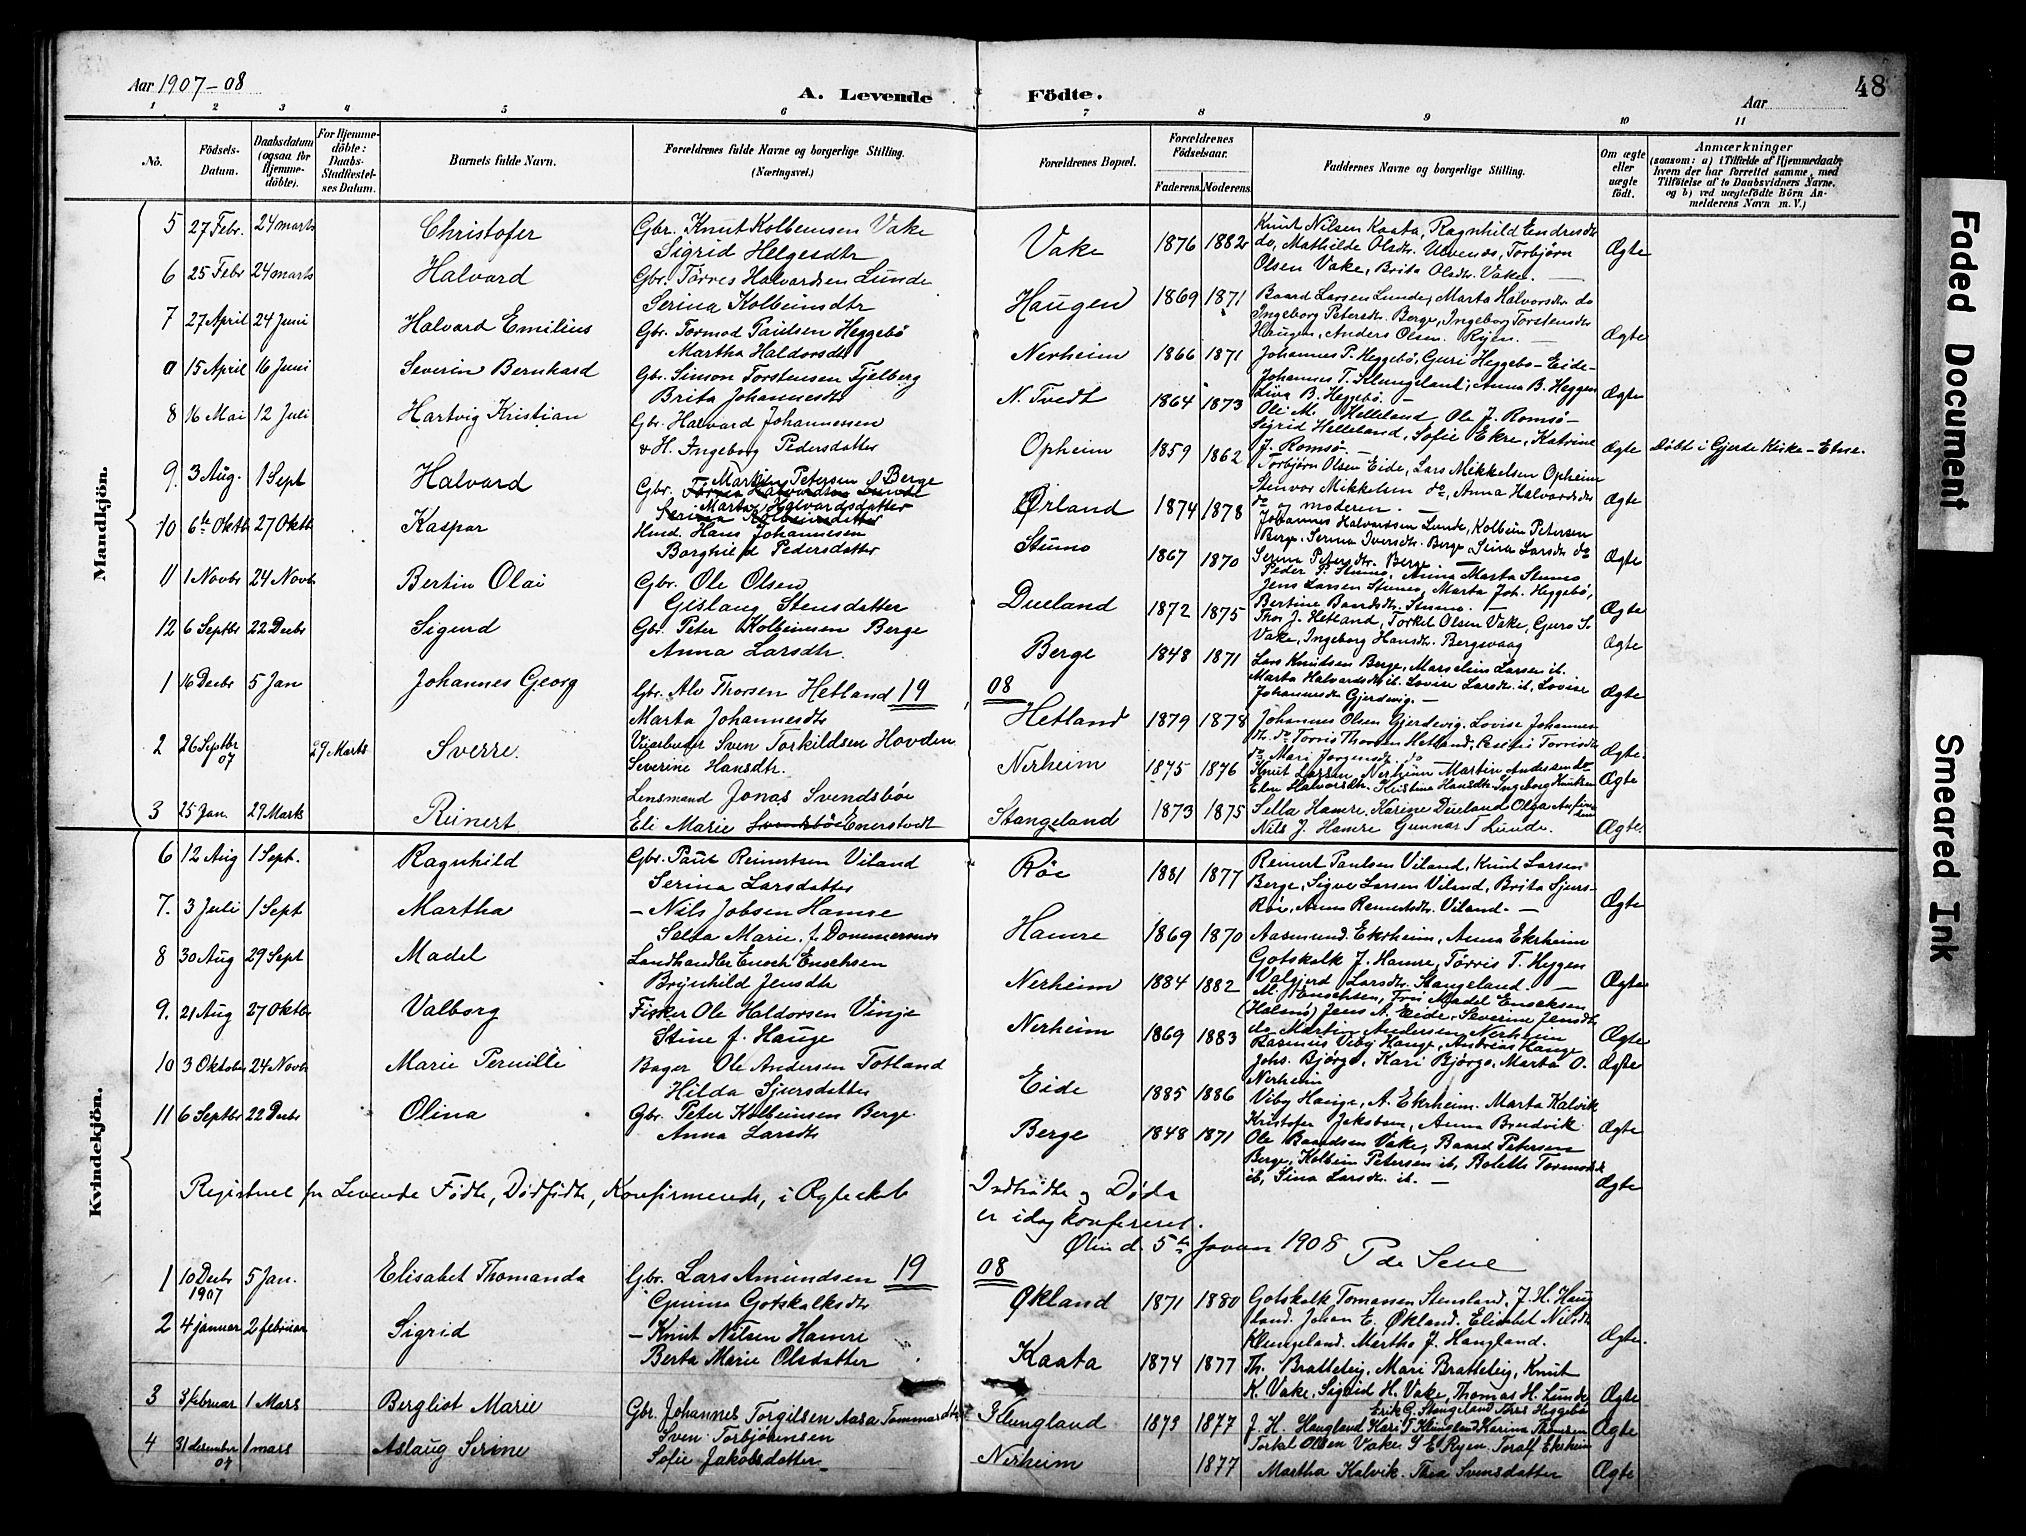 Aar 1907-08
A. Levende Födte.
Aar
48
1 2 3 4 5 6 7 8 9 10 11
No.
Födsels-Datum.
Daabsdatum (ogsaa for Hjemme-döbte).
For Hjemme-döbte: Daabs-Stadfæstel-ses Datum.
Barnets fulde Navn.
Forældrenes fulde Navne og borgerlige Stilling. (Næringsvei.)
Forældrenes Bopæl.
Forældrenes Födselsaar.
Faderens. Moderens.
Faddernes Navne og borgerlige Stilling.
Om ægte eller uægte födt.
Anmærkninger
(saasom: a) i Tilfælde af Hjemmedaab, hvem der har forrettet samme, med Tilföielse af to Daabsvidners Navne, og b) ved uægtefödte Börn An-melderens Navn m. V.)
Mandkjön.
5 27 Febr. 24 marts Christofer Gbr. Knut Kolbeinsen Vake
Sigrid Helgesdtr Vake 1876 1882 Knut Nilsen Kaata, Ragnhild Endresdtr
do, Mathilde Olsdtr. Torbjørn
Olsen Vake, Brita Olsdtr. Vake. Ægte
6 25 Febr 24 marts Halvard Gbr. Tørres Halvardsen Lunde
Serina Kolbeinsdtr Haugen 1869 1871 Baard Larsen Lunde, Marta Halvorsdtr. do
Ingeborg Petersdtr. Berge, Ingeborg Torstensdtr
Haugen, Anders Olsen Ryen. Ægte
7 27 April 24 Juni Halvard Emilius Gbr. Tormod Paulsen Heggebö
Martha Haldorsdtr Nerheim 1866 1871 Johannes P. Heggebö, Guri Heggebö - Eide -
Johannes T. Klungeland, Anna B. Heggen
B. Heggebö. Ægte
0 15 April 16 Juni Severin Bernhard Gbr. Simon Torstensen Fjelberg
Brita Johannesdtr N. Tvedt 1864 1873 Ole M. Helleland Ole J. Romsö -
Sigrid Helleland, Sofie Ekre, Katrine
J. Romsö. Ægte Döbt i Gjerde Kirke - Etne.
8 16 Mai 12 Juli Hartvig Kristian Gbr. Halvard Johannessen
& H. Ingeborg Pedersdatter Opheim 1859 1862 Torbjørn Olsen Eide, Lars Mikkelsen Opheim
Stenvor Mikkelsen do, Anna Halvardsdtr
do, moderen. Ægte
9. 3 Aug. 1 Sept Halvard Gbr. Martin Petersen Berge
Tørres Halvardsen Lunde
Marta Halvardsdatter
Serina Kolbeinsdatter Ørland 1874 1878 Johannes Halvardsen Lunde, Kolbein Petersen
Berge, Serina Iversdtr. Berge, Sina Larsdtr do
Serina Petersdtr. Berge. Ægte
10 6te Oktb 27 Oktb Kaspar Hmd. Hans Johannesen
Borghild Pedersdatter Stumo 1867 1870 Peder P. Stumo, Anna Marta Stumo
Jens Larsen Stumo, Marta Joh. Heggebö,
Bertine Baardsdtr. Stumo. Ægte
11 1 Novbr 24 Novb Bertin Olai Gbr. Ole Olsen
Gislaug Stensdatter Dueland 1872 1875 Thor J. Hetland, Torkel Olsen Vake, Guro S.
Vake, Ingeborg Hansdtr. Bergsvaag Ægte
12 6 Septbr 22 Decbr Sigurd Gbr. Peter Kolbeinsen Berge
Anna Larsdtr. Berge 1848 1871 Lars Knutsen Berge, Marselius Larsen ib.
Marta Halvardsdtr ib. Lovise Larsdtr. ib, Lovise
Johannesdtr Gjerdevig. Ægte
1908
1 16 Decbr 5 Jan Johannes Georg Gbr. Alv Thorsen Hetland
Marta Johannesdtr Hetland 1879 1878 Johannes Olsen Gjerdevig. Lovise Johannes-
dtr. do Torris Thorsen Hetland, Torrisdtr
do Mari Ægte.
2 26 Septbr 07 29 Marts Sverre Veiarbeider Sven Torkildsen Hovden
Severine Hansdtr. Nerheim 1875 1876 Knut Larsen Nerheim Martin Andersen do
Halvorsdtr. Kristina Hansdtr Ingeborg Knutsen Ægte
3 25 Jan. 29 Marts Reinert Lensmand Jonas Svendsböe
Eli Marie Svendsböe Enerstvedt Stangeland 1873 1875 Sella Hamre, Karine Dueland Olga
Nils J. Hamre Gunnar T Lunde. Ægte
Kvindekjön.
6 12 Aug 1 Sept. Ragnhild Gbr. Paul Reinertsen Viland
Serina Larsdatter Röe 1881 1877 Reinert Paulsen Viland, Knut Larsen
Berge, Sigve Larsen Viland, Brita Sjurs-
Röe, Anna Reinertsdtr. Viland. Ægte
7. 3 Juli 1 Sept Martha - Nils Jobsen Hamre
Selia Marie, f. Dommersnes Hamre 1869 1870 Aasmund Ekrheim, Anna Ekrheim
Gotskalk J. Hamre, Tørris T. Hygen
Valgjerd Larsdtr. Stangeland Ægte
8 30 Aug 29 Sept Madel Landhandler Enoch Enochsen
Brynhild Jensdtr Nerheim 1884 1882 M. Enochsen, Fru Madel Enochsen
(Halsnö) Jens A. Eide, Severine Jensdtr
do Martin Andersen Nerheim Ægte
9. 21 Aug 27 Oktbr Valborg Fisker Ole Haldorsen Vinje
Stine f. Hauge Nerheim 1869 1883 Rasmus Viby Hauge, Andreas Hauge
Johs. Björge, Kari Björge, Marta O.
Nerheim Ægte
10 3 Oktobr 24 Novbr Marie Pernille Bager Ole Andersen Totland
Hilda Sjursdatter Eide 1885 1886 Viby Hauge, A. Ekrheim. Marta Kalvik
Kristofer Jakobsen, Anna Brudvik. Ægte
11 6 Septbr 22 Decbr Olina Gbr. Peter Kolbeinsen Berge
Anna Larsdtr Berge 1848 1871 Ole Baardsen Vake, Baard Petersen
Berge, Kolbein Petersen ib, Bolette Tormodsdtr
ib, Sina Larsdtr. ib. Ægte
Registret for Levende Fødte, Dødfødte, Konfirmerede, i Ægteskab Indtrådte og Døde
er idag konfereret.
Ølen d. 5te Januar 1908 P de Seue
1908
1 10 Decbr 1907 5 Jan. Elisabet Thomanda Gbr. Lars Amundsen
Gurina Gotskalksdtr Økland 1871 1880 Gotskalk Tomassen Stensland, J. H. Haug
land. Johan E. Økland. Elisabet Nilsdtr
Klungeland. Martha J. Haugland. Ægte.
2 4 januar 2 februar Sigrid - Knut Nilsen Hamre
Berta Marie Olsdatter Kaata 1874 1877 Th. Bratteteig, Mari Bratteteig, Knut
K. Vake, Sigrid H. Vake, Thomas H. Lunde Ægte
3 3 februar 1 Mars Bergliot Marie Gbr. Johannes Torgilsen Aasa Tommasdtr Klungland 1873 1877 Erik G. Stangeland Heggebö
J. H. Haugland Kari T Klungland Karina Thomsen Ægte
4 31 desember 07 1 mars Aslaug Serine Sven Torbjörnsen
Sofie Jakobsdatter Nerheim 1877 Torkel Olsen Vake G E Ryen. Toralf Ekrheim
Martha Kalvik. Thea Svensdatter Ægte
Faded Document
Smeared Ink